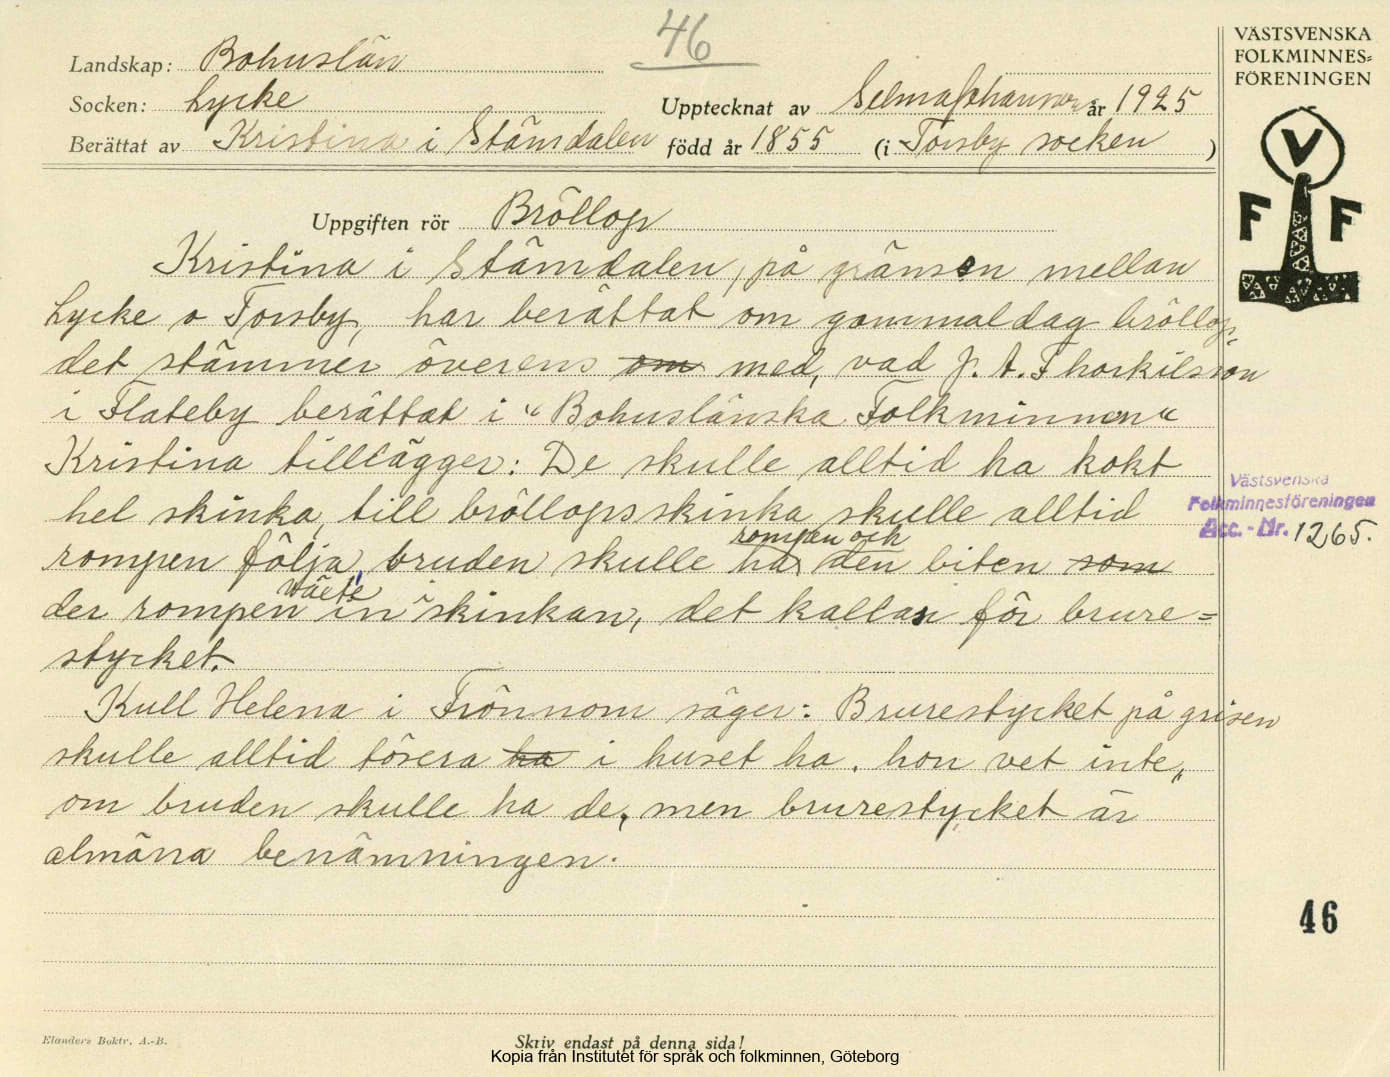 46
Landskap: Bohuslän
Socken: Lycke
Upptecknat av Selma Johansson år 1925
Berättat av Kristina i Stämdalen född år 1855 (i Torsby socken )
VÄSTSVENSKA
FOLKMINNES=
FÖRENINGEN
V
F F
Uppgiften rör Bröllop
Kristina i Stämdalen, på gränsen mellan
Lycke o Torsby, har berättat om gammaldag bröllop,
det stämmer överens om med, vad J. A. Thorkilsson
i Flateby berättat i "Bohuslänska Folkminnen"
Kristina tillägger: De skulle alltid ha kokt
hel skinka, till bröllopsskinka skulle alltid
rompen och
rompen följa, bruden skulle ha den biten som
wäets
der rompen in i skinkan, det kallas för brure=
stycket.
Kull Helena i Frönnom säger: Brurestycket på grisen
skulle alltid tösera ha i huset ha. hon vet inte,
om bruden skulle ha de, men brurestycket är
almäna benämningen.
Västsvenska
Folkminnesföreningen
Acc.-Nr. 1265.
46
Elanders Boktr. A.-B.
Skriv endast på denna sida!
Kopia från Institutet för språk och folkminnen, Göteborg